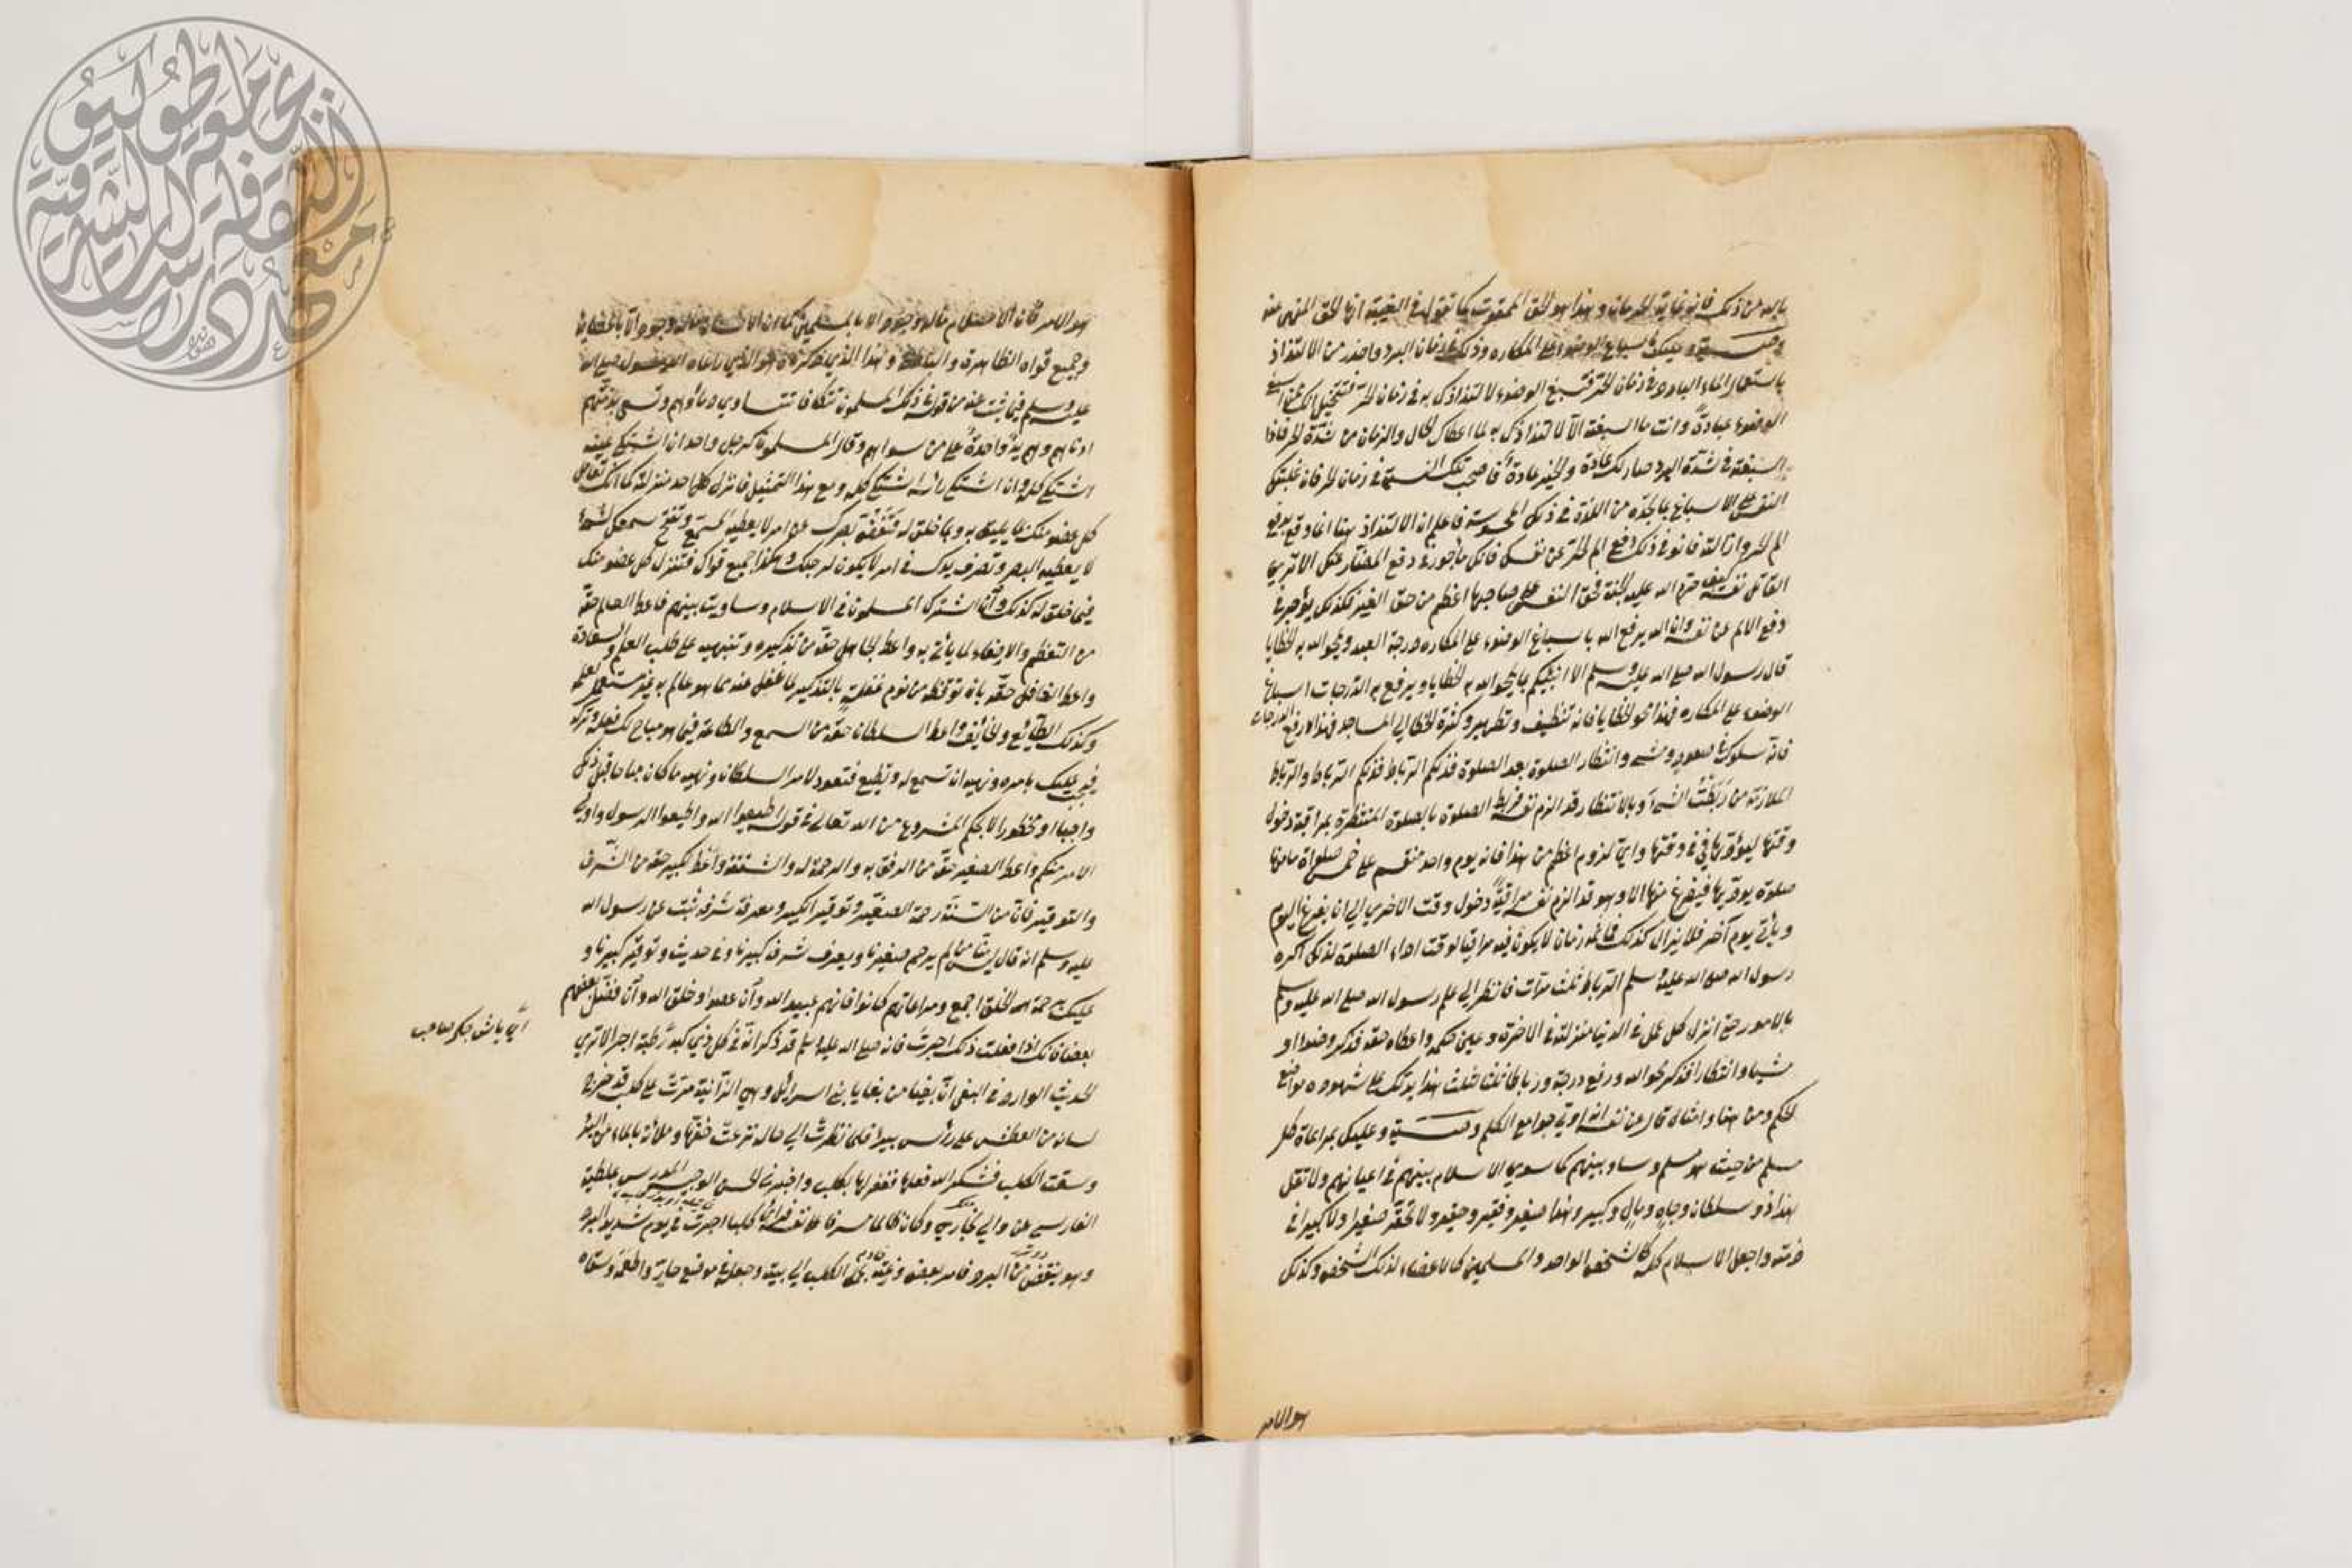 بالله من ذلك فانه غاية الحرمان وهذا هو الحق الممقوت كما تقول في الغيبة انها الحق المنهى عنه
وصية وعليك باسباغ الوضوء على المكاره وذلك في زمان البرد واحذر من الالتذاذ
باستعمال الماء البارد في زمان الحر فتسبغ الوضوء لالتذاذك به في زمان الحر فتتخيل انك ممن اسبغ
الوضوء عبادة وانت ما اسبغته الا لالتذاذك به لما اعطاك الحال والزمان من شدة الحر فاذا
اسبغته في شدة البرد صار لك عادة والخير عادة فاصحب تلك النية في زمان الحر فان غلبتك
النفس على الاسباغ بما تجده من اللذة في ذلك المحسوسة فاعلم ان الالتذاذ هنا انما وقع بدفع
الم الحر وازالته فانو في ذلك دفع الم الحر عن نفسك فانك مأجور في دفع المضار عنك الا ترى
القاتل نفسه كيف حرم الله عليه الجنة فحق النفس على صاحبها اعظم من حق الغير فكذلك يؤجر في
دفع الالم عن نفسه وان الله يرفع الله باسباغ الوضوء على المكاره درجة العبد ويمحو الله به الخطايا
قال رسول الله صلى الله عليه وسلم الا انبئكم بما يمحو الله به الخطايا ويرفع به الدرجات اسباغ
الوضوء على المكاره فهذا محو الخطايا فانه تنظيف وتطهير وكثرة الخطا الى المساجد فهذا رفع الدرجات
فانه سلوك في صعود ومشى وانتظار الصلوة بعد الصلوة فذلكم الرباط فذلكم الرباط والرباط
الملازمة من ربطت الشيء وبالانتظار قد الزم نفسه فربط الصلوة بالصلوة المنتظرة بمراقبة دخول
وقتها ليؤديها في وقتها واي لزوم اعظم من هذا فانه يوم واحد منقسم على خمس صلوات ما منها
صلوة يؤديها فيفرغ منها الا وهو قد الزم نفسه مراقبة دخول وقت الاخرى الى ان يفرغ اليوم
ويأتي يوم آخر فلا يزال كذلك فما ثم زمان لا يكون فيه مراقبا لوقت اداء الصلوة لذلك اكده
رسول الله صلى الله عليه وسلم الرباط ثلث مرات فانظر الى علم رسول الله صلى الله عليه وسلم
بالامور حتى انزل كل عمل في الدنيا منزلته في الاخرة وعين حكمه واعطاه حقه فذكر وضوا و
مشيا وانتظارا فذكر محو الله ورفع درجة ورباطا ثلث لثلث هذا يدلك على شهوده مواضع
الحكم ومن هنا وامثاله قال عن نفسه انه اوتي جوامع الكلم وصية وعليك بمراعاة كل
مسلم من حيث هو مسلم وساو بينهم كما سوى الاسلام بينهم في اعيانهم ولا تقل
هذا ذو سلطان وجاه ومال وكبير وهذا صغير وفقير وحقير ولا تحقر صغيرا ولا كبيرا في
ذمته واجعل الاسلام كله كالشخص الواحد والمسلمين كالاعضاء لذلك الشخص وكذلك
هو الامر
هو الامر فان الاسلام ماله وجود الا بالمسلمين كما ان الانسان ماله وجود الا باعضائه
وجميع قواه الظاهرة والباطنة وهذا الذي ذكرناه هو الذي راعاه رسول الله صلى الله
عليه وسلم فيما ثبت عنه من قوله في ذلك المسلمون تتكافا تتساوى دماؤهم ويسعى بذمتهم
ادناهم وهم يد واحدة على من سواهم وقال المسلمون كرجل واحد ان اشتكى عينه
اشتكى كله وان اشتكى رأسه اشتكى كله ومع هذا التمثيل فانزل كل احد منزلته كما انك تعامل
كل عضو منك بما يليق به وبما خلق له فتغض بصرك عن امر لا يعطيه السمع وتفتح سمعك لشيء
لا يعطيه البصر وتصرف يدك في امر لا يكون لرجلك وهكذا جميع قواك فتنزل كل عضو منك
فيما خلق له كذلك وان اشترك المسلمون في الاسلام وساويت بينهم فاعط العالم حقه
من التعظيم والاصغاء لما يأتي به واعط الجاهل حقه من تذكيره وتنبيهه على طلب العلم والسعادة
واعط الغافل حقه بان توقظه من نوم غفلته بالتذكير لما غفل عنه مما هو عالم به غير مستعمل لعلمه
وكذلك الطائع والمخالف واعط السلطان حقه من السمع والطاعة فيما هو مباح لك فعله وتركه
فيجب عليك بامره ونهيه ان تسمع له وتطيع فتعود لامر السلطان ونهيه ما كان مباحا قبل ذلك
واجبا او محظورا بالحكم المشروع من الله تعالى في قوله اطيعوا الله واطيعوا الرسول واولى
الامر منكم واعط الصغير حقه من الرفق به والرحمة له والشفقة واعط الكبير حقه من الشرف
والتوقير فان من السنة رحمة الصغير وتوقير الكبير ومعرفة شرفه ثبت عن رسول الله
عليه وسلم انه قال ليس منا من لم يرحم صغيرنا ويعرف شرف كبيرنا وفي حديث ويوقر كبيرنا و
عليك برحمة الخلق اجمع ومراعاتهم كانوا ما كانوا فانهم عبيد الله وان عصوا وخلق الله وان فضل بعضهم
بعضا فانك اذا فعلت ذلك اجرت فانه صلى الله عليه وسلم قد ذكر انه في كل ذي كبد رطبة اجر الا ترى
الحديث الوارد في البغى ان بغيا من بغايا بني اسرائيل وهي الزانية مرت على كلب قد خرج
لسانه من العطش على رأس بئر فلما نظرت الى حاله نزعت خفها وملأته بالماء من البئر
وسقت الكلب فشكر الله فعلها فغفر لها بكلب واخبرنا الحسن الوجيه المدرس بملطية
الفارسي عن والي بخارى وكان ظالما مسرفا على نفسه فرأى كلبا اجرب في يوم شديد البرد
وهو ينتفض من البرد فامر بعض وزعته فحمل الكلب الى بيته وجعله في موضع حار واطعمه وسقاه